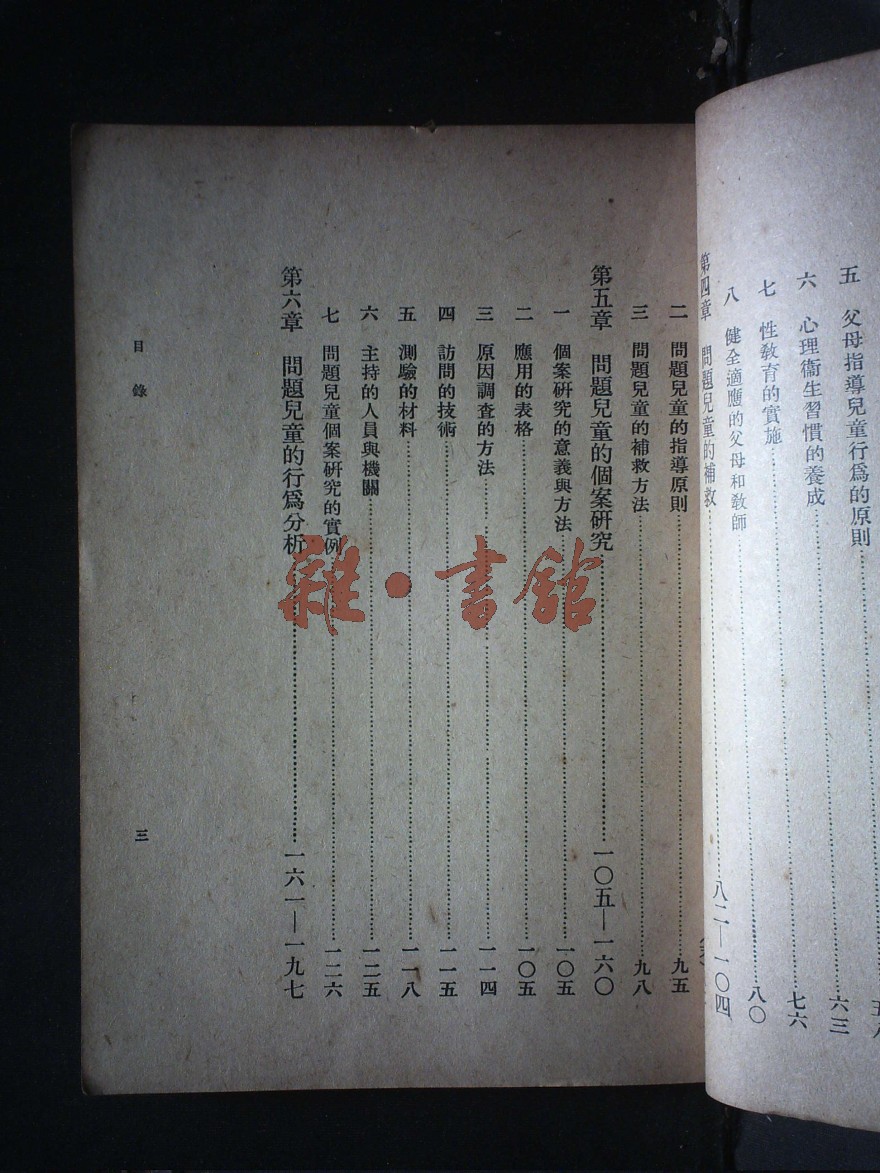 五 父母指導兒童行爲的原則
六 心理衞生習慣的養成 六三
七 性敎育的實施 七六
八 健全適應的父母和敎師 八〇
第四章 問題兒童的補救 八二—一〇四
二 問題兒童的指導原則 九五
三 問題兒童的補救方法 九八
第五章 問題兒童的個案硏究 一〇五—一六〇
一 個案硏究的意義與方法 一〇五
二 應用的表格 一〇五
三 原因調查的方法 一一四
四 訪問的技術 一一五
五 測驗的材料 一一八
六 主持的人員與機關 一二五
七 問題兒童個案硏究的實例 一二六
第六章 問題兒童的行爲分析 一六一—一九七
目錄 三
雜·書館